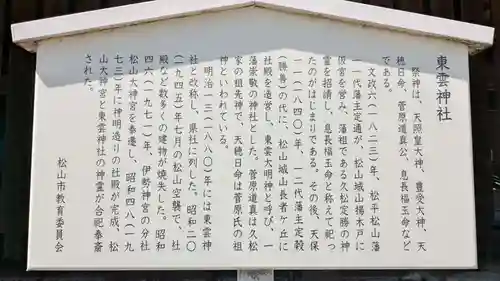 東雲神社
祭神は、天照皇大神、豊受大神、天
穂日命、菅原道真公、息長福玉命など
である。
文政六(一八二三)年、松平松山藩
一一代藩主定通が、松山城山揚木戸に
仮宮を営み、藩祖である久松定勝の神
霊を招請し、息長福玉命と称えて祀っ
たのがはじまりである。その後、天保
一一(一八四〇)年、一二代藩主定穀
(勝善)の代に、松山城山長者ヶ丘に
社殿を造営し、東雲大明神と呼び、一
藩崇敬の神社とした。菅原道真は久松
家の祖先神で、天穂日命は菅原氏の祖
神といわれている。
明治一三(一八八〇)年には東雲神
社と改称し、県社に列した。昭和二〇
(一九四五)年七月の松山空襲で、社
殿など数多くの建物が焼失した。昭和
四六(一九七一)年、伊勢神宮の分社
松山大神宮を奉遷し、昭和四八(一九
七三)年に神明造りの社殿が完成、松
山大神宮と東雲神社の神霊が合祀奉斎
された。
松山市教育委員会